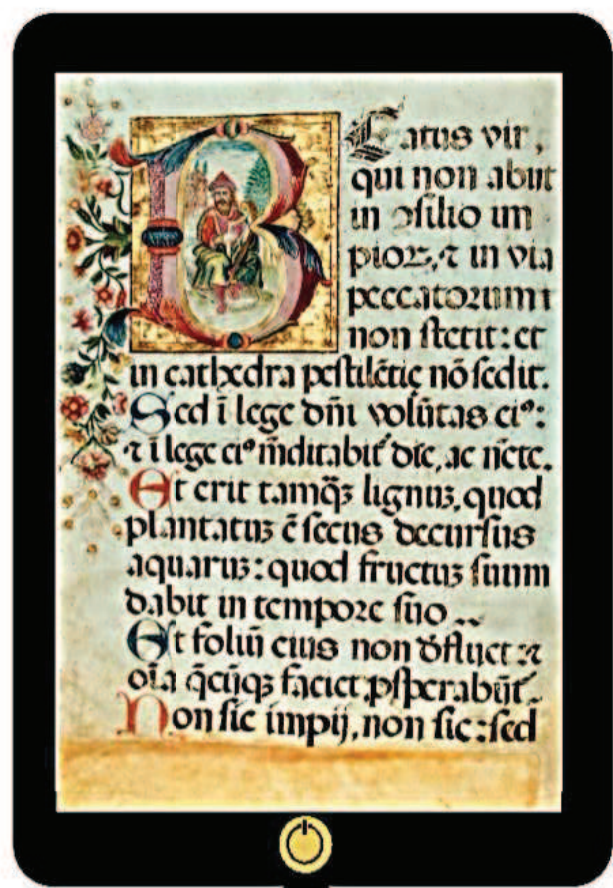 Beatus vir,
qui non abiit
in ↄsilio im
pioꝝ, ⁊ in via
peccatorum
non stetit: et
in cathedra pestilētie nō sedit.
Sed ī lege dn̄i volūtas eiꝰ:
⁊ ī lege eiꝰ meditabit̄ die, ac nc̄te.
Et erit tamqꝫ lignuꝫ, quod
plantatuꝫ ē secus decursus
aquaruꝫ: quod fructuꝫ suum
dabit in tempore suo
Et foliū eius non defluet: ⁊
oīa q̄cūqꝫ faciet ꝓsperabūt̄.
Non sic impij, non sic: sed